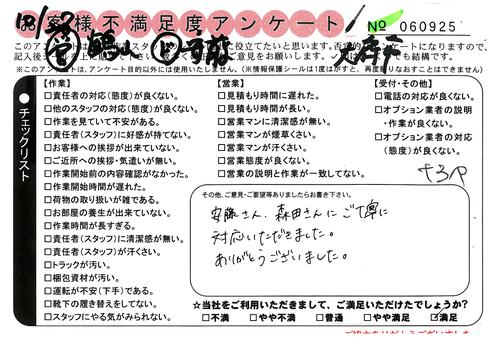 お客様不満足度アンケート
№ 060925
【作業】
□責任者の対応(態度)が良くない。
□他のスタッフの対応(態度)が良くない。
□作業を見ていて不安がある。
□責任者(スタッフ)に好感が持てない。
□お客様への挨拶が出来ていない。
□ご近所への挨拶・気遣いが無い。
□作業開始前の内容確認がなかった。
□作業開始時間が遅れた。
□荷物の取り扱いが雑である。
□お部屋の養生が出来ていない。
□作業時間が長すぎる。
□責任者(スタッフ)に清潔感が無い。
□責任者(スタッフ)が汗くさい。
□トラックが汚い。
□梱包資材が汚い。
□運転が不安(下手)である。
□靴下の履き替えをしてない。
□スタッフにやる気がみられない。
【営業】
□見積もり時間に遅れた。
□見積もり時間が長い。
□営業マンに清潔感が無い。
□営業マンが煙草くさい。
□営業マンが汗くさい。
□営業態度が良くない。
□営業の説明と作業が一致してない。
【受付・その他】
□電話の対応が良くない。
□オプション業者の説明
・作業が良くない。
□オプション業者の対応
(態度)が良くない。
チェックリスト
その他、ご意見・ご要望等ありましたらお書き下さい。
安藤さん、森田さんにご丁寧に
対応いただきました。
ありがとうございました。
☆当社をご利用いただきまして、ご満足いただけたでしょうか?
□不満 □やや不満 □普通 □やや満足 ☑満足